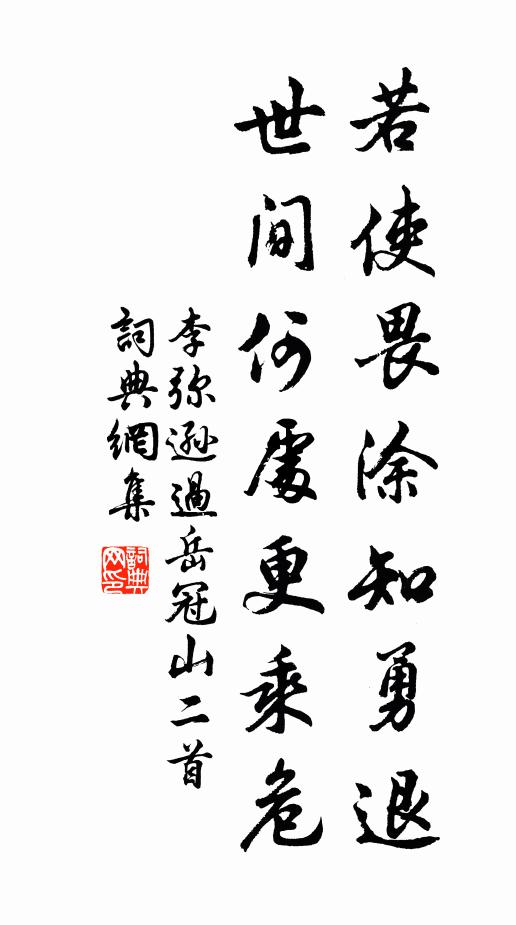 若使畏涂知勇退
世间何處更乘危
李弥遜過岳冠山二首
詞典網集
詞典网印